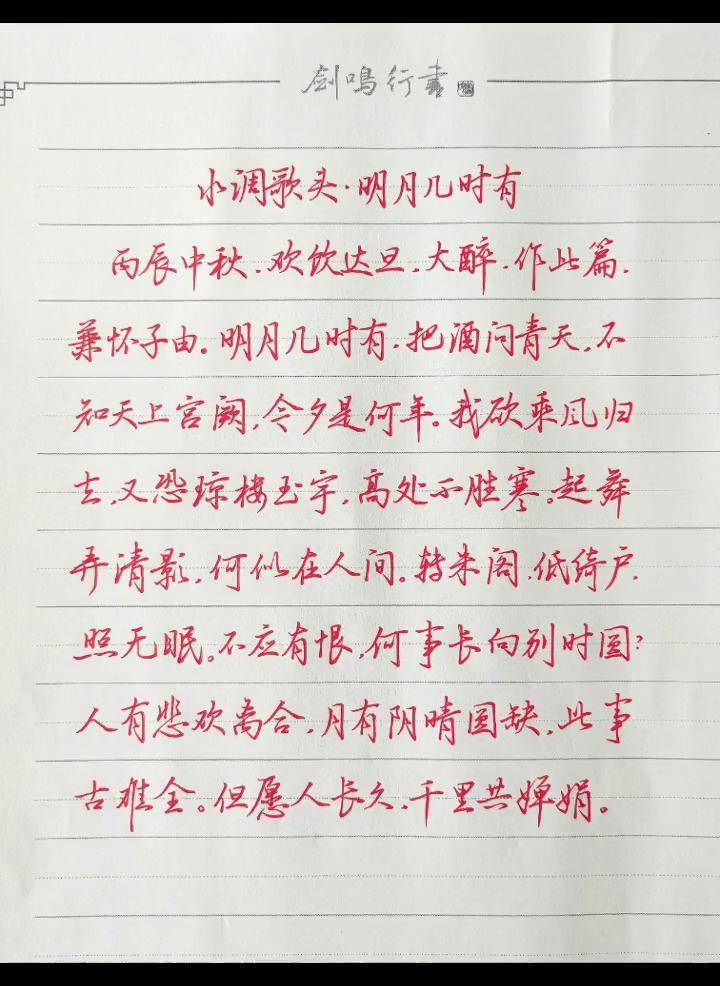 剑鸣行书
水调歌头·明月几时有
丙辰中秋，欢饮达旦，大醉，作此篇，
兼怀子由。明月几时有，把酒问青天，不
知天上宫阙，今夕是何年。我欲乘风归
去，又恐琼楼玉宇，高处不胜寒。起舞
弄清影，何似在人间。转朱阁，低绮户，
照无眠。不应有恨，何事长向别时圆？
人有悲欢离合，月有阴晴圆缺，此事
古难全。但愿人长久，千里共婵娟。